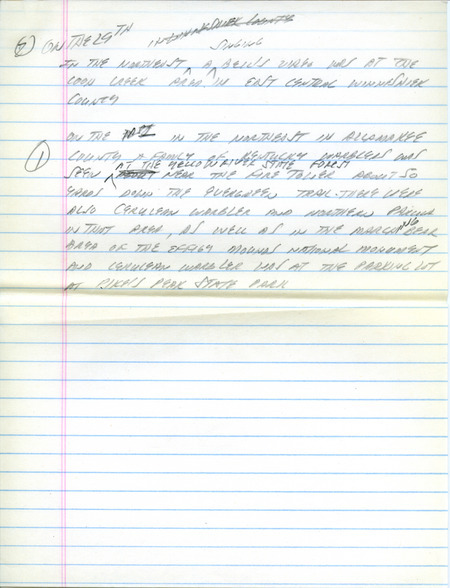 ② ON THE 29TH IN WINNESHIEK COUNTY
SINGING
IN THE NORTHEAST, A BELL'S VIREO WAS AT THE
COON CREEK AREA IN EAST CENTRAL WINNESHIEK
COUNTY
① ON THE IN THE NORTHEAST IN ALLAMAKEE
COUNTY A FAMILY OF KENTUCKY WARBLERS WAS
AT THE YELLOW RIVER STATE FOREST
SEEN NEAR THE FIRE TOWER ABOUT 50
YARDS DOWN THE EVERGREEN TRAIL. THERE WERE
ALSO CERULEAN WARBLER AND NORTHERN PARULA
IN THAT AREA, AS WELL AS IN THE MARCHING BEAR
AREA OF THE EFFIGY MOUNDS NATIONAL MONUMENT
AND CERULEAN WARBLER WAS AT THE PARKING LOT
AT PIKE'S PEAK STATE PARK